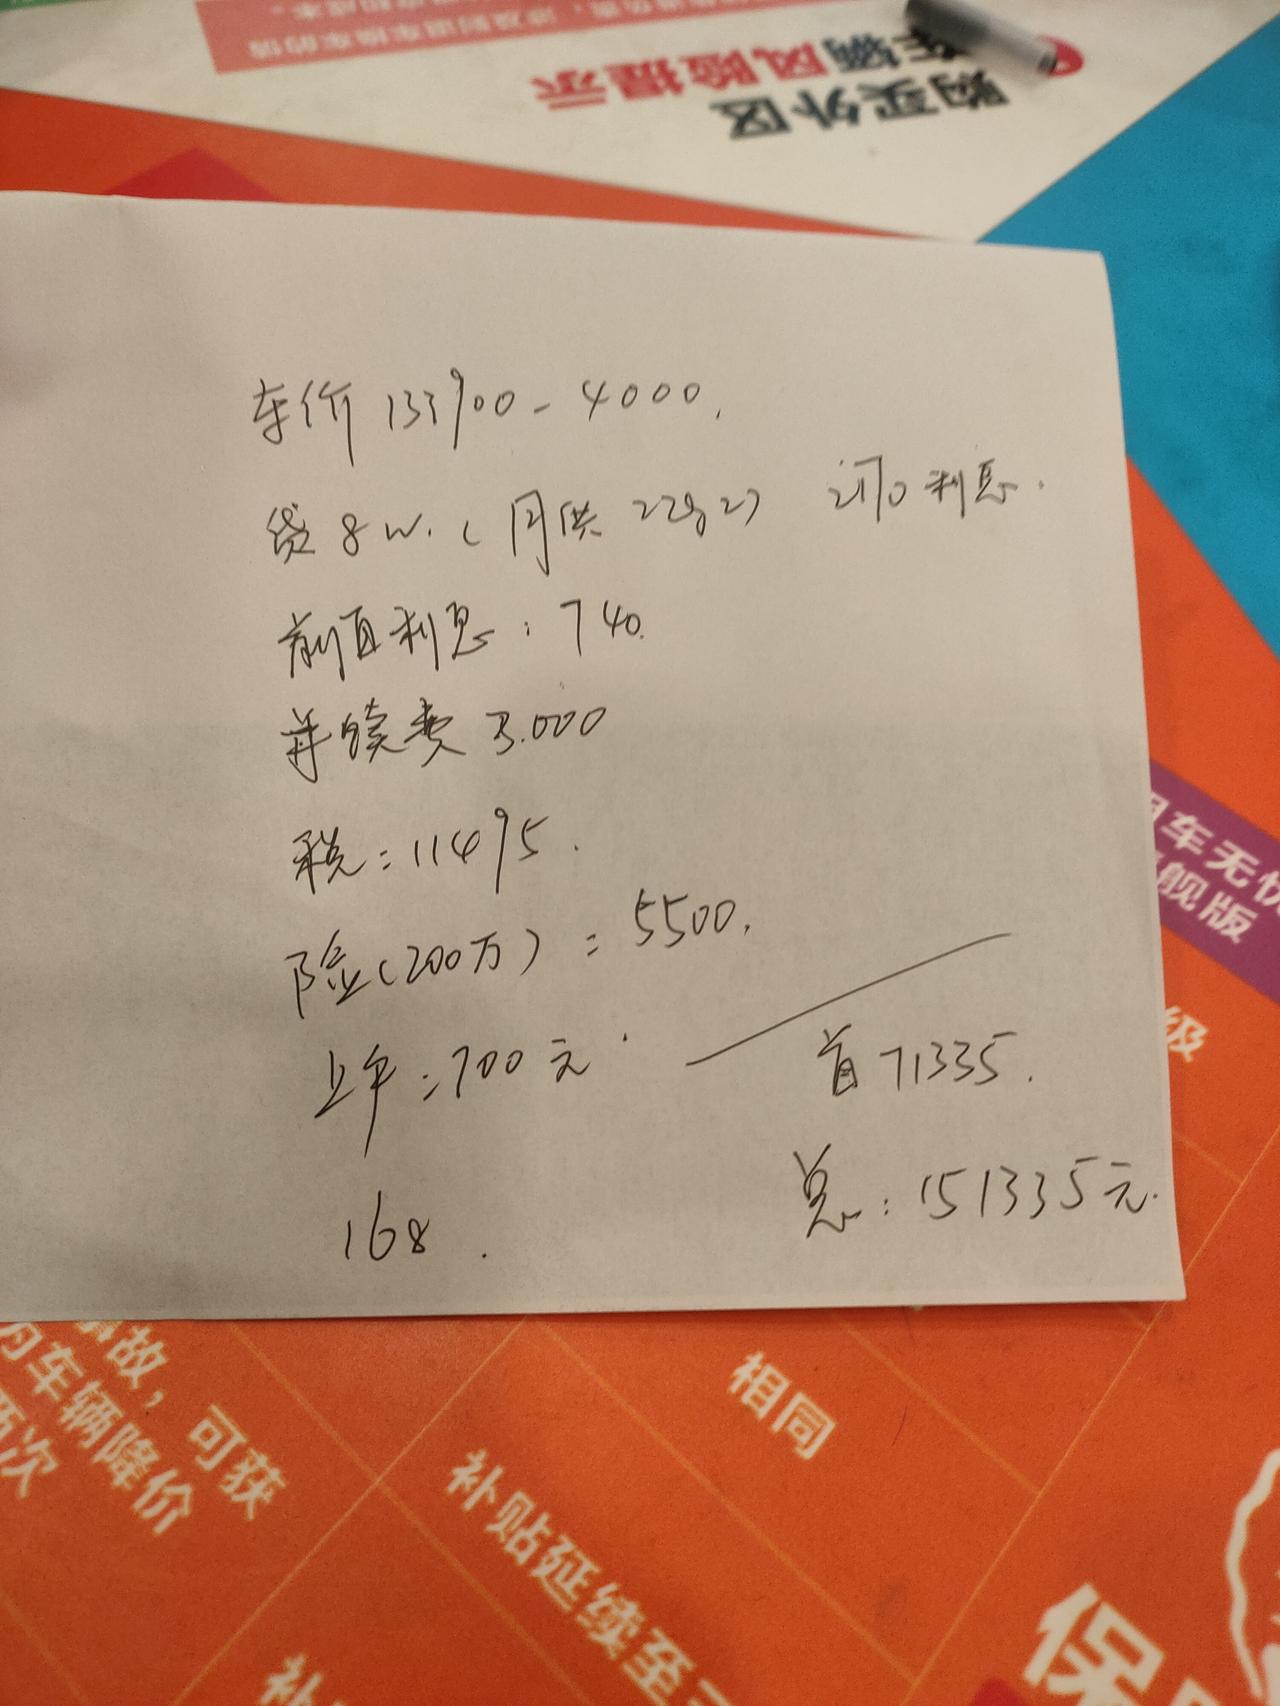 购买外区
车辆风险提示
车价 133900 - 4000.
贷 8W. (月供 2282) 2170 利息.
前置利息: 740.
手续费 3.000
税: 11495.
险(200万) = 5500.
上户: 700元.
首 71335.
总: 151335元.
168.
车无忧
舰版
级
故，可获
为车辆降价
两次
相同
补贴延续至
补
保